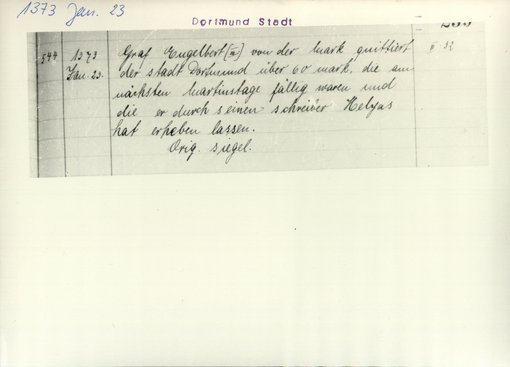 1373 Jan. 23
Dortmund Stadt
544 1373 Graf Engelbert [III] von der Mark quittiert II 32
Jan. 23. der Stadt Dortmund über 60 mark, die am
nächsten Martinstage fällig waren und
die er durch seinen Schreiber Helyas
hat erheben lassen.
Orig. Siegel.